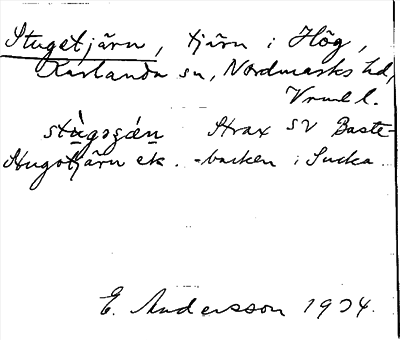 Stugetjärn, tjärn i Hög,
Karlanda sn, Nordmarks hd,
Vrml l.
stù̱gəʂǽṉ Strax SV Baste-
Stugotjärn ek. -backen i Sucka.
E. Andersson 1934.